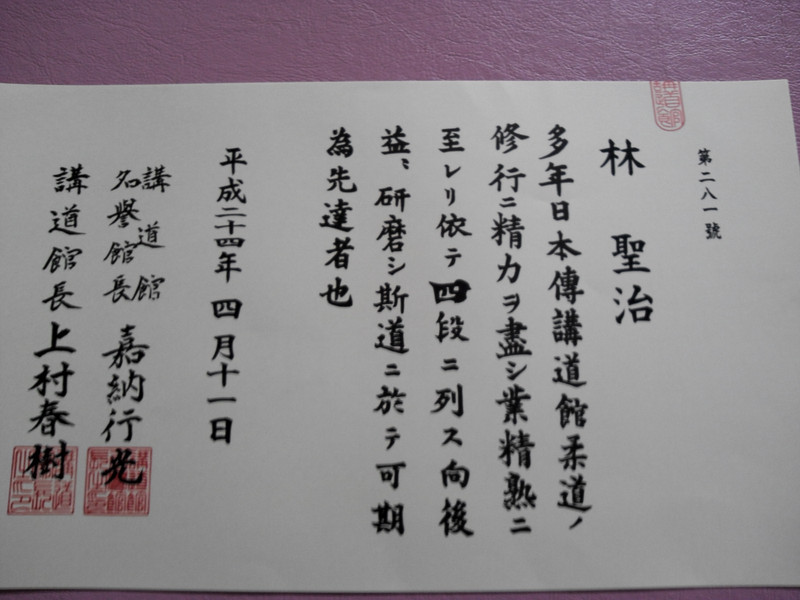 第二八一號
林 聖治
多年日本傳講道館柔道ノ
修行ニ精力ヲ盡シ業精熟ニ
至レリ依テ四段ニ列ス向後
益〻研磨シ斯道ニ於テ可期
為先達者也
平成二十四年四月十一日
講道館
名譽館長 嘉納行光
講道館長 上村春樹